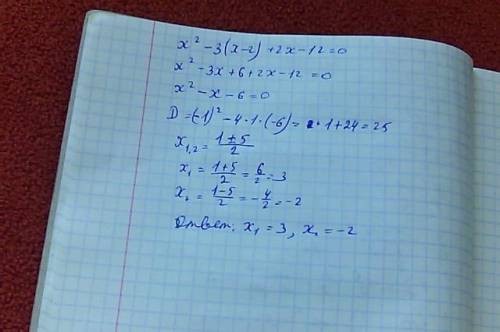 x² - 3(x-2) + 2x - 12 = 0
x² - 3x + 6 + 2x - 12 = 0
x² - x - 6 = 0
D = (-1)² - 4 · 1 · (-6) = 1 + 24 = 25
x₁,₂ = (1 ± 5)/2
x₁ = (1+5)/2 = 6/2 = 3
x₂ = (1-5)/2 = -4/2 = -2
Ответ: x₁ = 3, x₂ = -2